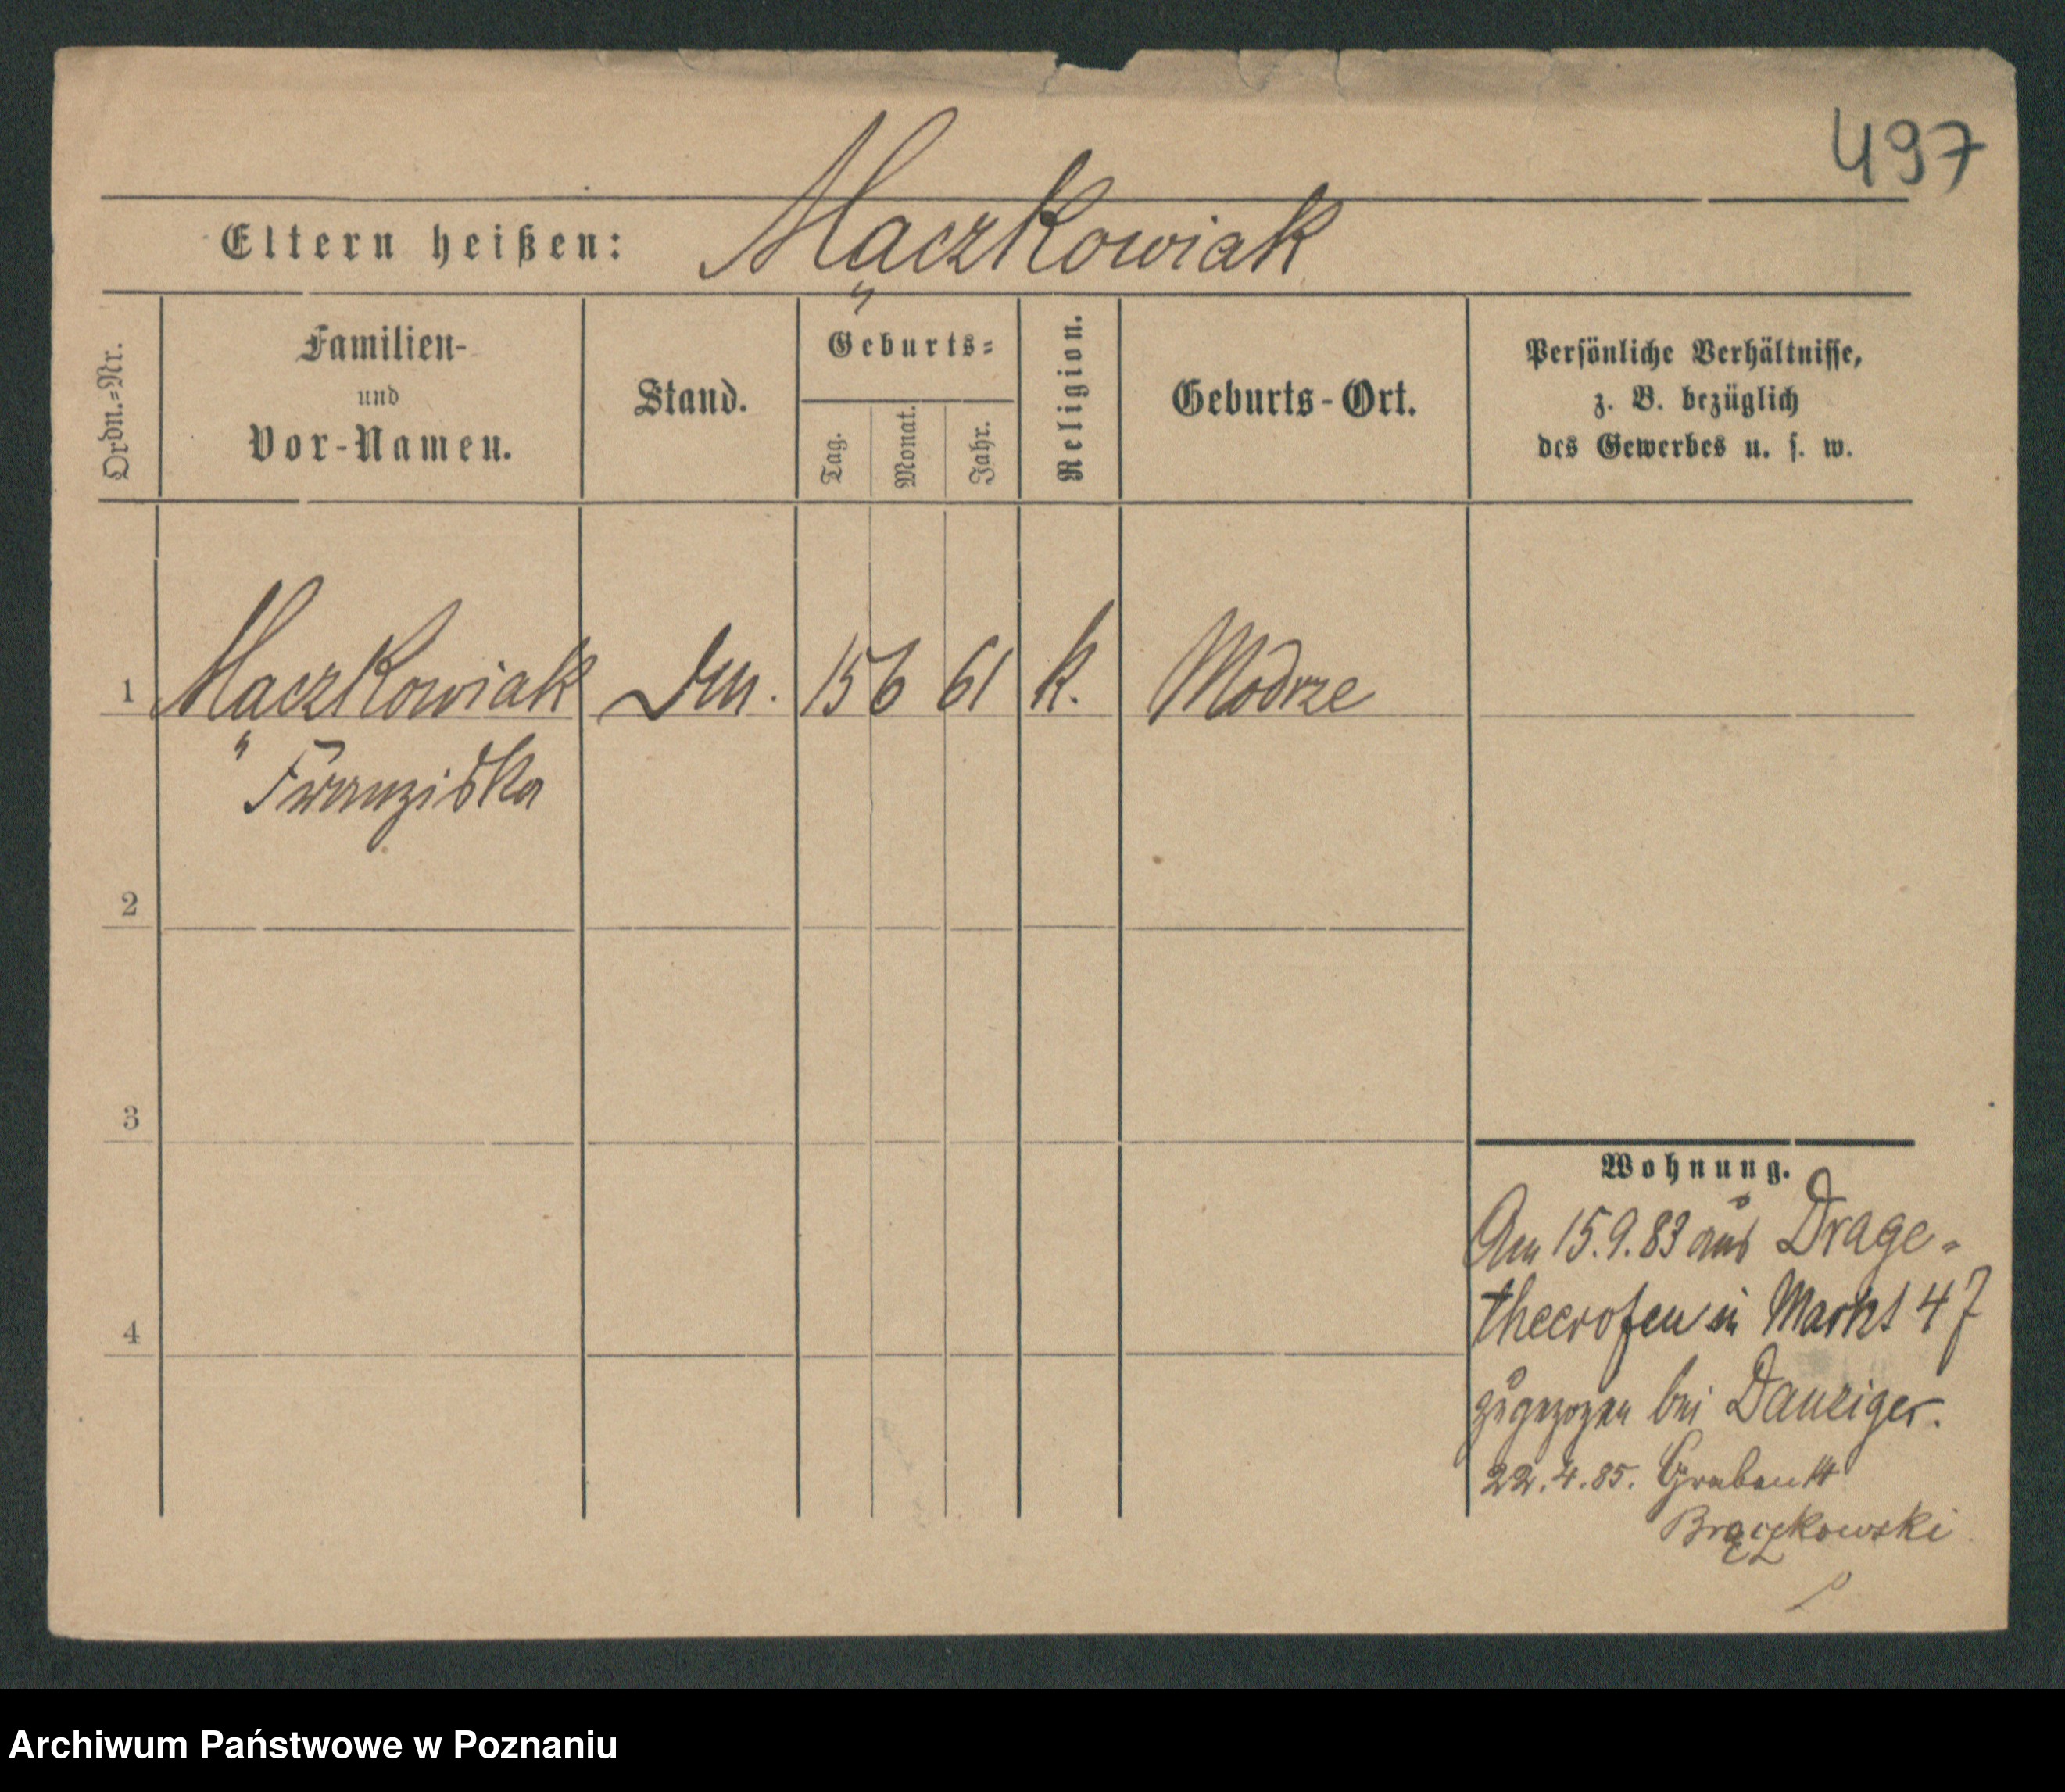 497
Eltern heißen: Mączkowiak
Ordn.-Nr.
Familien-
und
Vor-Namen.
Stand.
Geburts-
Tag.
Monat.
Jahr.
Religion.
Geburts-Ort.
Persönliche Verhältnisse,
z. B. bezüglich
des Gewerbes u. s. w.
1 Mączkowiak 15 6 61 k. Modrze
Franziska
2
3
4
Wohnung.
Am 15.9.83 aus Drage-
theerofen in Markt 47
zugezogen bei Danziger.
22.4.85. Graben 14
Brączkowski
Archiwum Państwowe w Poznaniu